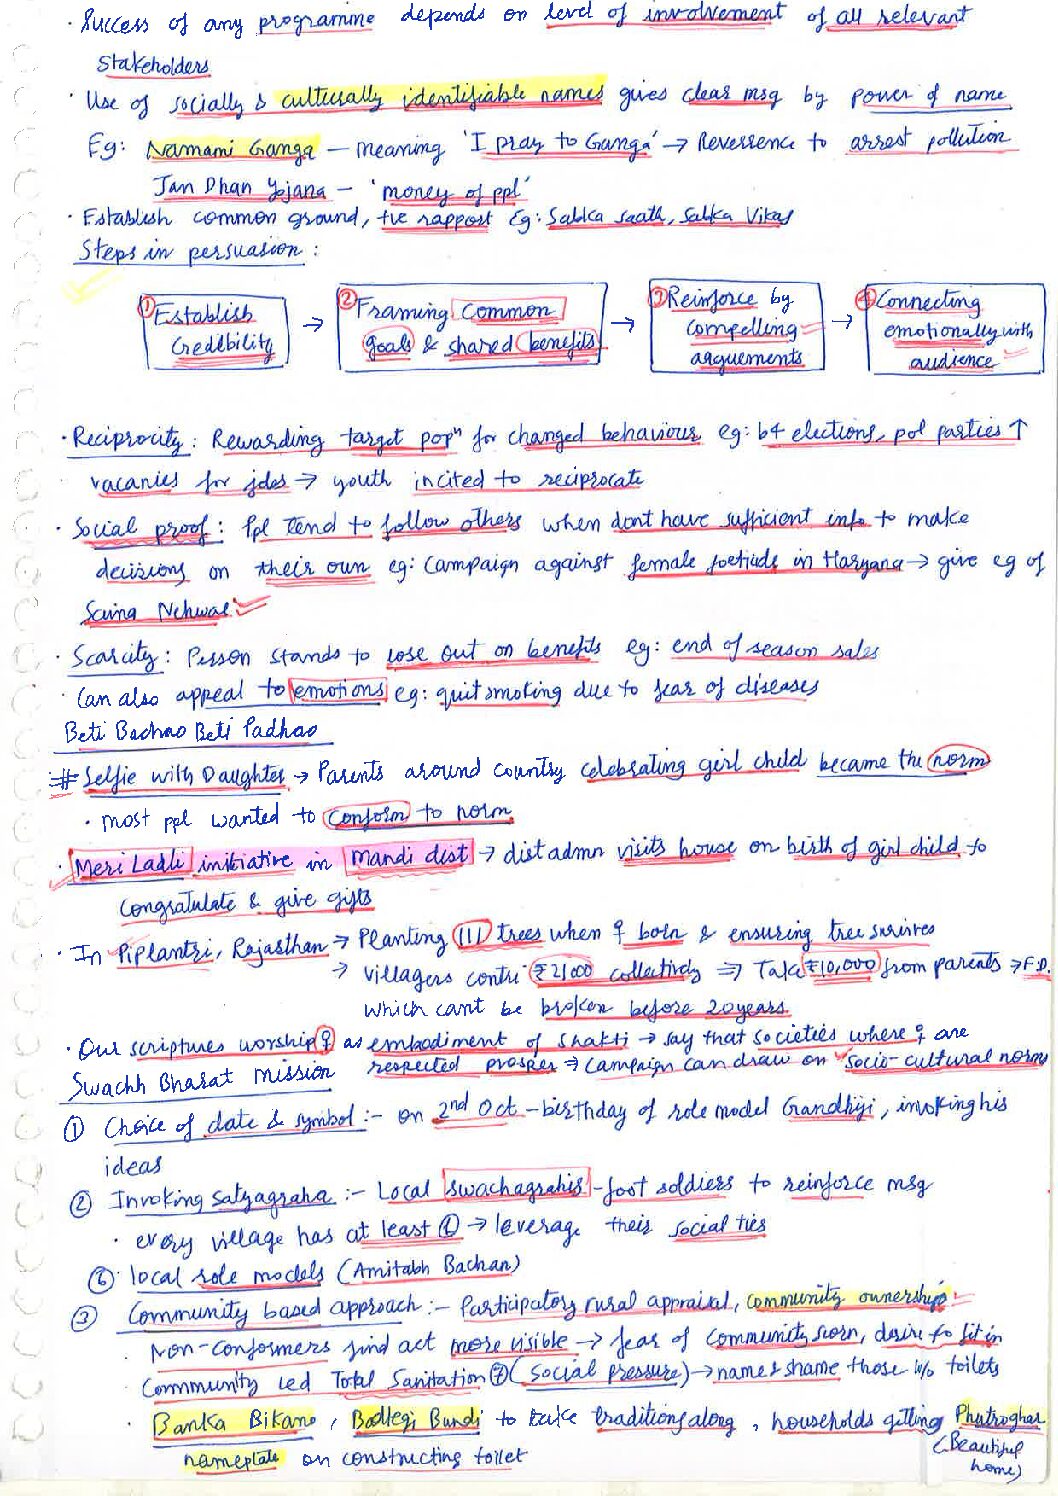 · Success of any programme depends on level of involvement of all relevant
stakeholders
· Use of socially & culturally identifiable names gives clear msg by power of name
Eg: Namami Ganga — meaning 'I pray to Ganga' → Reverrence to arrest pollution
Jan Dhan Yojana – 'money of ppl'
· Establish common ground, +ve rapport Eg: Sabka Saath, Sabka Vikas
Steps in persuasion :
① Establish Credibility → ② Framing Common goals & shared benefits → ③ Reinforce by compelling arguements → ④ Connecting emotionally with audience
· Reciprocity : Rewarding target popⁿ for changed behaviour eg: b4 elections, pol parties ↑
vacancies for jobs → youth incited to reciprocate
· Social proof : Ppl tend to follow others when dont have sufficient info to make
decisions on their own eg: Campaign against female foeticide in Haryana → give eg of
Saina Nehwal
· Scarcity : Person stands to lose out on benefits eg: end of season sales
· Can also appeal to emotions eg: quit smoking due to fear of diseases
Beti Bachao Beti Padhao
# Selfie with Daughter → Parents around country celebrating girl child became the norm
· most ppl wanted to conform to norm
· Meri Ladli initiative in Mandi dist → dist admn visits house on birth of girl child to
congratulate & give gifts
· In Piplantri, Rajasthan → Planting 111 trees when ♀ born & ensuring tree survives
→ villagers contri ₹21000 collectively ⇒ Take ₹10,000 from parents → F.D.
which cant be broken before 20 years.
· Our scriptures worship ♀ as embodiment of Shakti → say that societies where ♀ are
respected prosper → campaign can draw on socio-cultural norms
Swachh Bharat Mission
① Choice of date & symbol :- on 2nd Oct – birthday of role model Gandhiji, invoking his
ideas
② Invoking Satyagraha :- Local swachagrahis – foot soldiers to reinforce msg
· every village has at least ① → leverage their social ties
⑥ local role models (Amitabh Bachan)
③ Community based approach :- Participatory rural appraisal, community ownership
Non-conformers find act more visible → fear of community scorn, desire to fit in
Community Led Total Sanitation ⑦ (Social pressure) → name & shame those w/o toilets
· Banka Bikano, Badlegi Bundi to take traditions along, households getting
nameplate on constructing toilet (Beautiful
home)